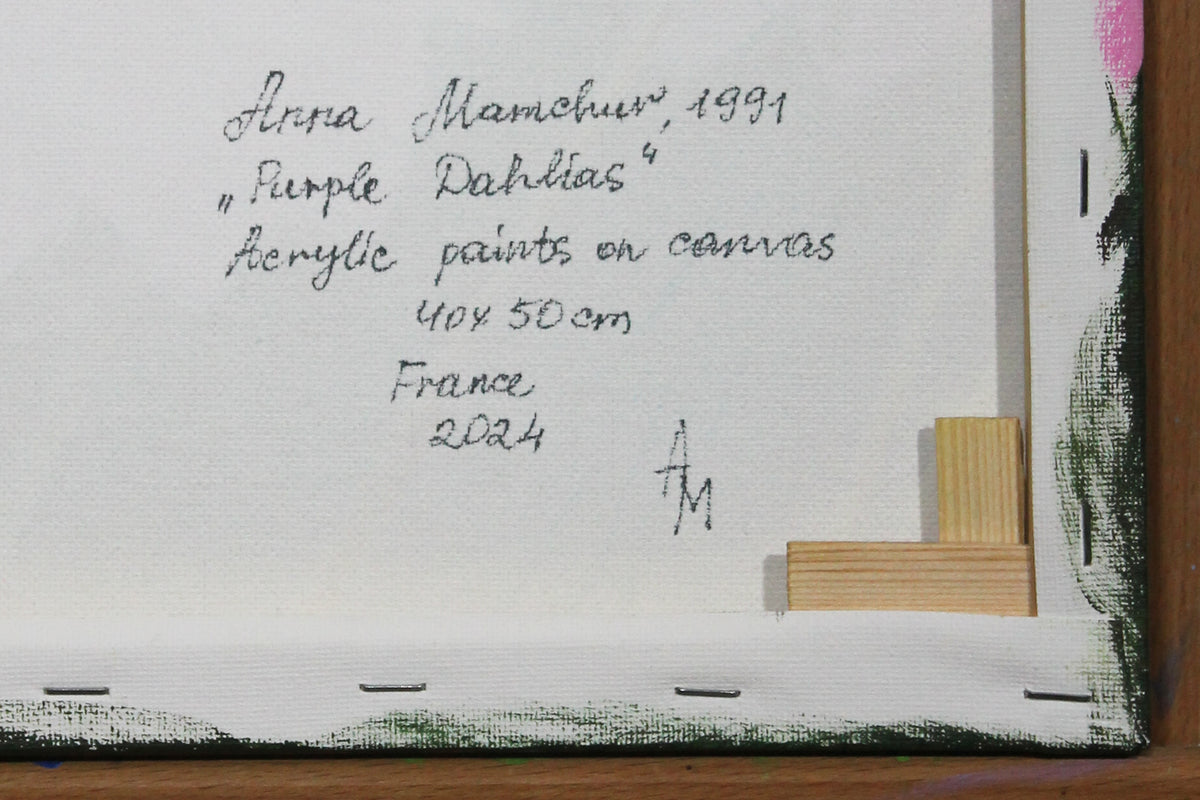 Anna Mamchur, 1991
„Purple Dahlias“
Acrylic paints on canvas
40x50cm
France
2024
AM